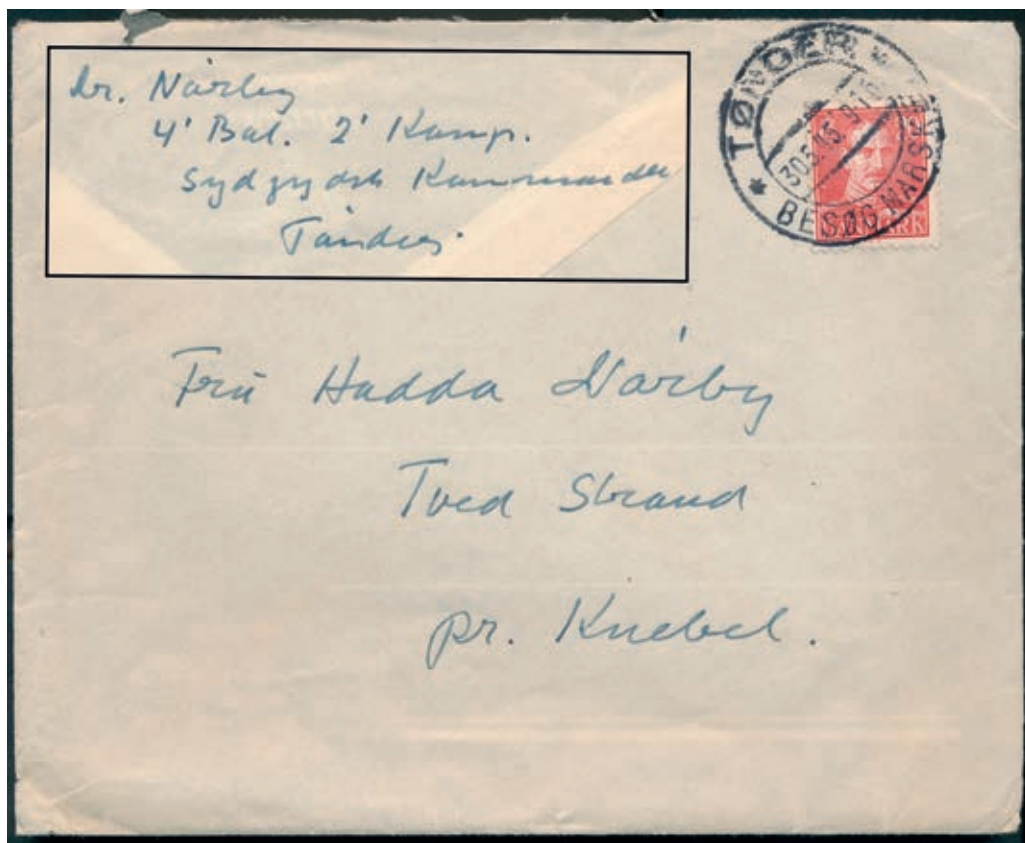 hr. Nårby
4' Bat. 2' Komp.
Sydjydsk Kommando
Tønder.
TØNDER *
30.5.45. 9
* BESØG MARSK
Fru Hadda Nårby
Tved Strand
pr. Knebel.